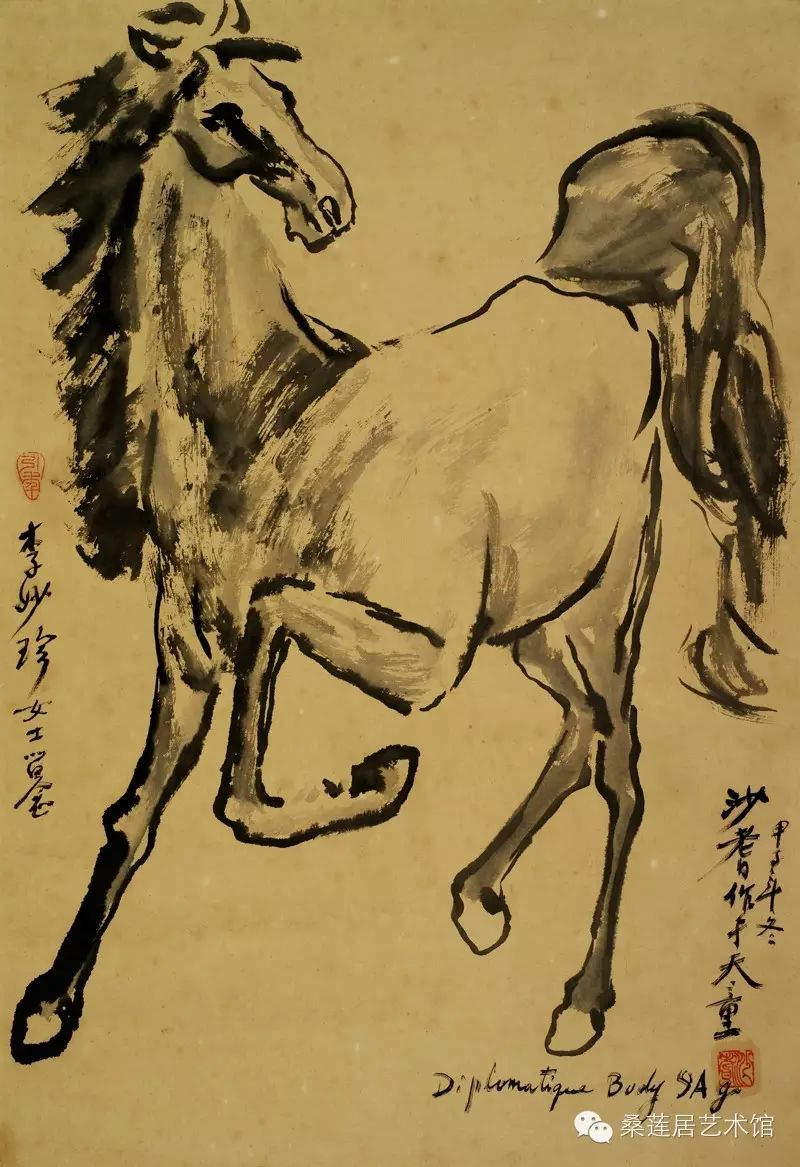 甲子年冬
沙耆作于天童
李妙珍女士
Diplomatique Body
桑莲居艺术馆